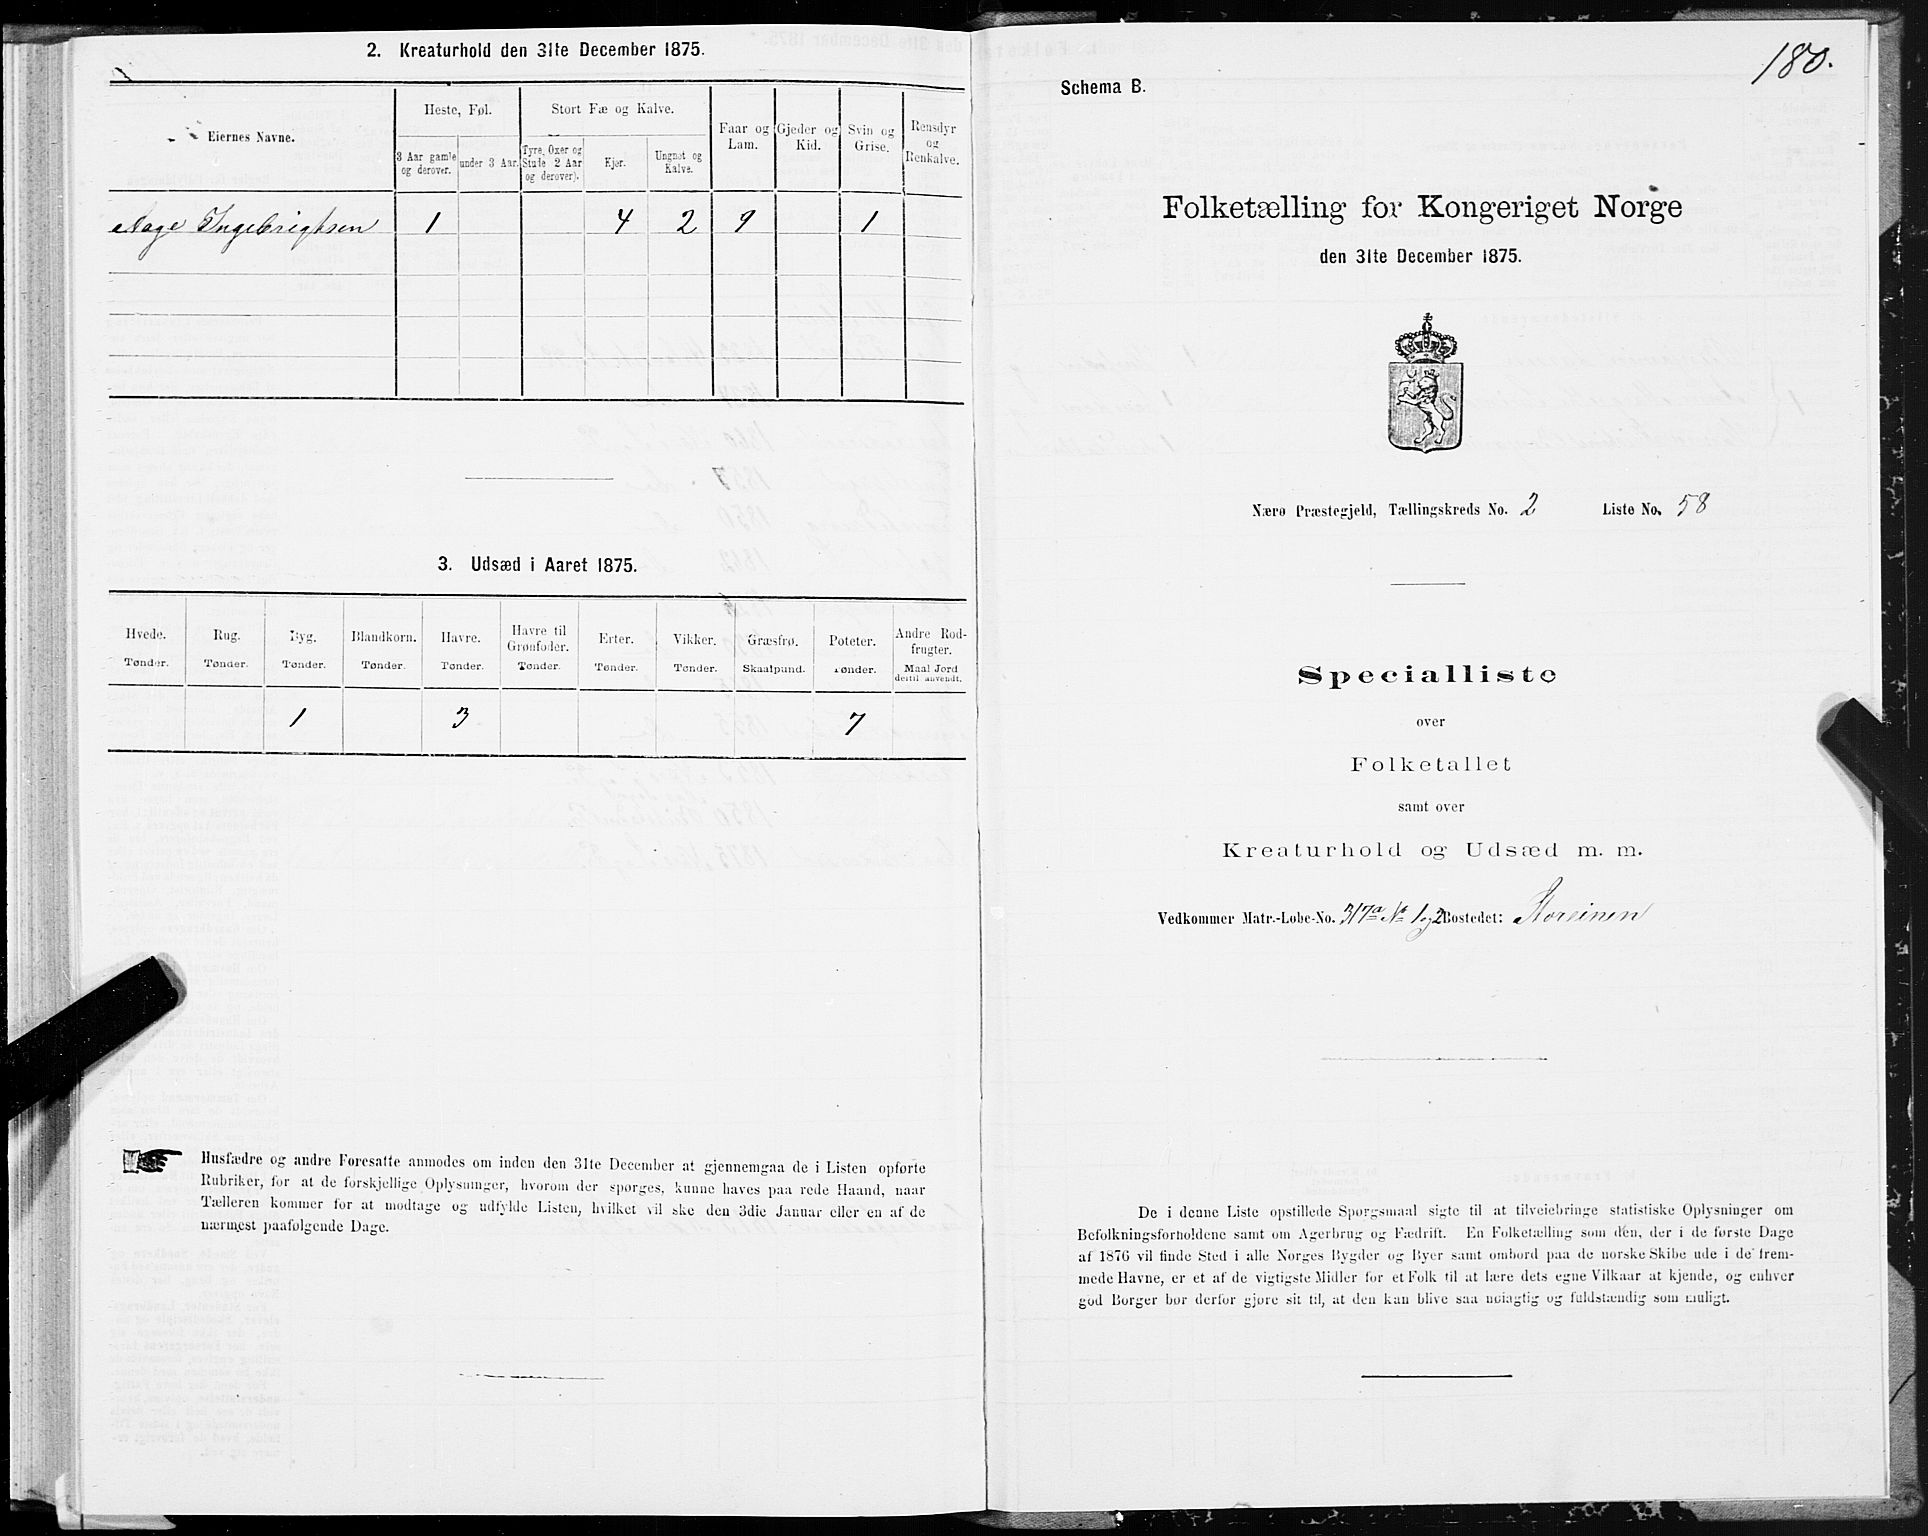 2. Kreaturhold den 31te December 1875.
Eiernes Navne.
Heste, Føl.
3 Aar gamle og derover.
under 3 Aar.
Stort Fæ og Kalve.
Tyre, Oxer og Stude 2 Aar og derover).
Kjør.
Ungnøt og Kalve.
Faar og Lam.
Gjeder og Kid.
Svin og Grise.
Rensdyr og Renkalve.
Aage Ingebrigtsen 1 4 2 9 1
3. Udsæd i Aaret 1875.
Hvede. Rug. Byg. Blandkorn. Havre. Havre til Grønfoder. Erter. Vikker. Græsfrø. Poteter. Andre Rodfrugter.
Tønder. Tønder. Tønder. Tønder. Tønder. Tønder. Tønder. Tønder. Skaalpund. Tønder. Maal Jord dertil anvendt.
1 3 7
Husfædre og andre Foresatte anmodes om inden den 31te December at gjennemgaa de i Listen opførte
Rubriker, for at de forskjellige Oplysninger, hvorom der spørges, kunne haves paa rede Haand, naar
Tælleren kommer for at modtage og udfylde Listen, hvilket vil ske den 3die Januar eller en af de
nærmest paafølgende Dage.
180.
Schema B.
Folketælling for Kongeriget Norge
den 31te December 1875.
Nærø Præstegjeld, Tællingskreds No. 2 Liste No. 58
Specialliste
over
Folketallet
samt over
Kreaturhold og Udsæd m. m.
Vedkommer Matr.-Løbe-No. 317a № 1 og 2 Bostedet: Storeinen
De i denne Liste opstillede Spørgsmaal sigte til at tilveiebringe statistiske Oplysninger om
Befolkningsforholdene samt om Agerbrug og Fædrift. En Folketælling som den, der i de første Dage
af 1876 vil finde Sted i alle Norges Bygder og Byer samt ombord paa de norske Skibe ude i de frem-
mede Havne, er et af de vigtigste Midler for et Folk til at lære dets egne Vilkaar at kjende, og enhver
god Borger bør derfor gjøre sit til, at den kan blive saa nøiagtig og fuldstændig som muligt.